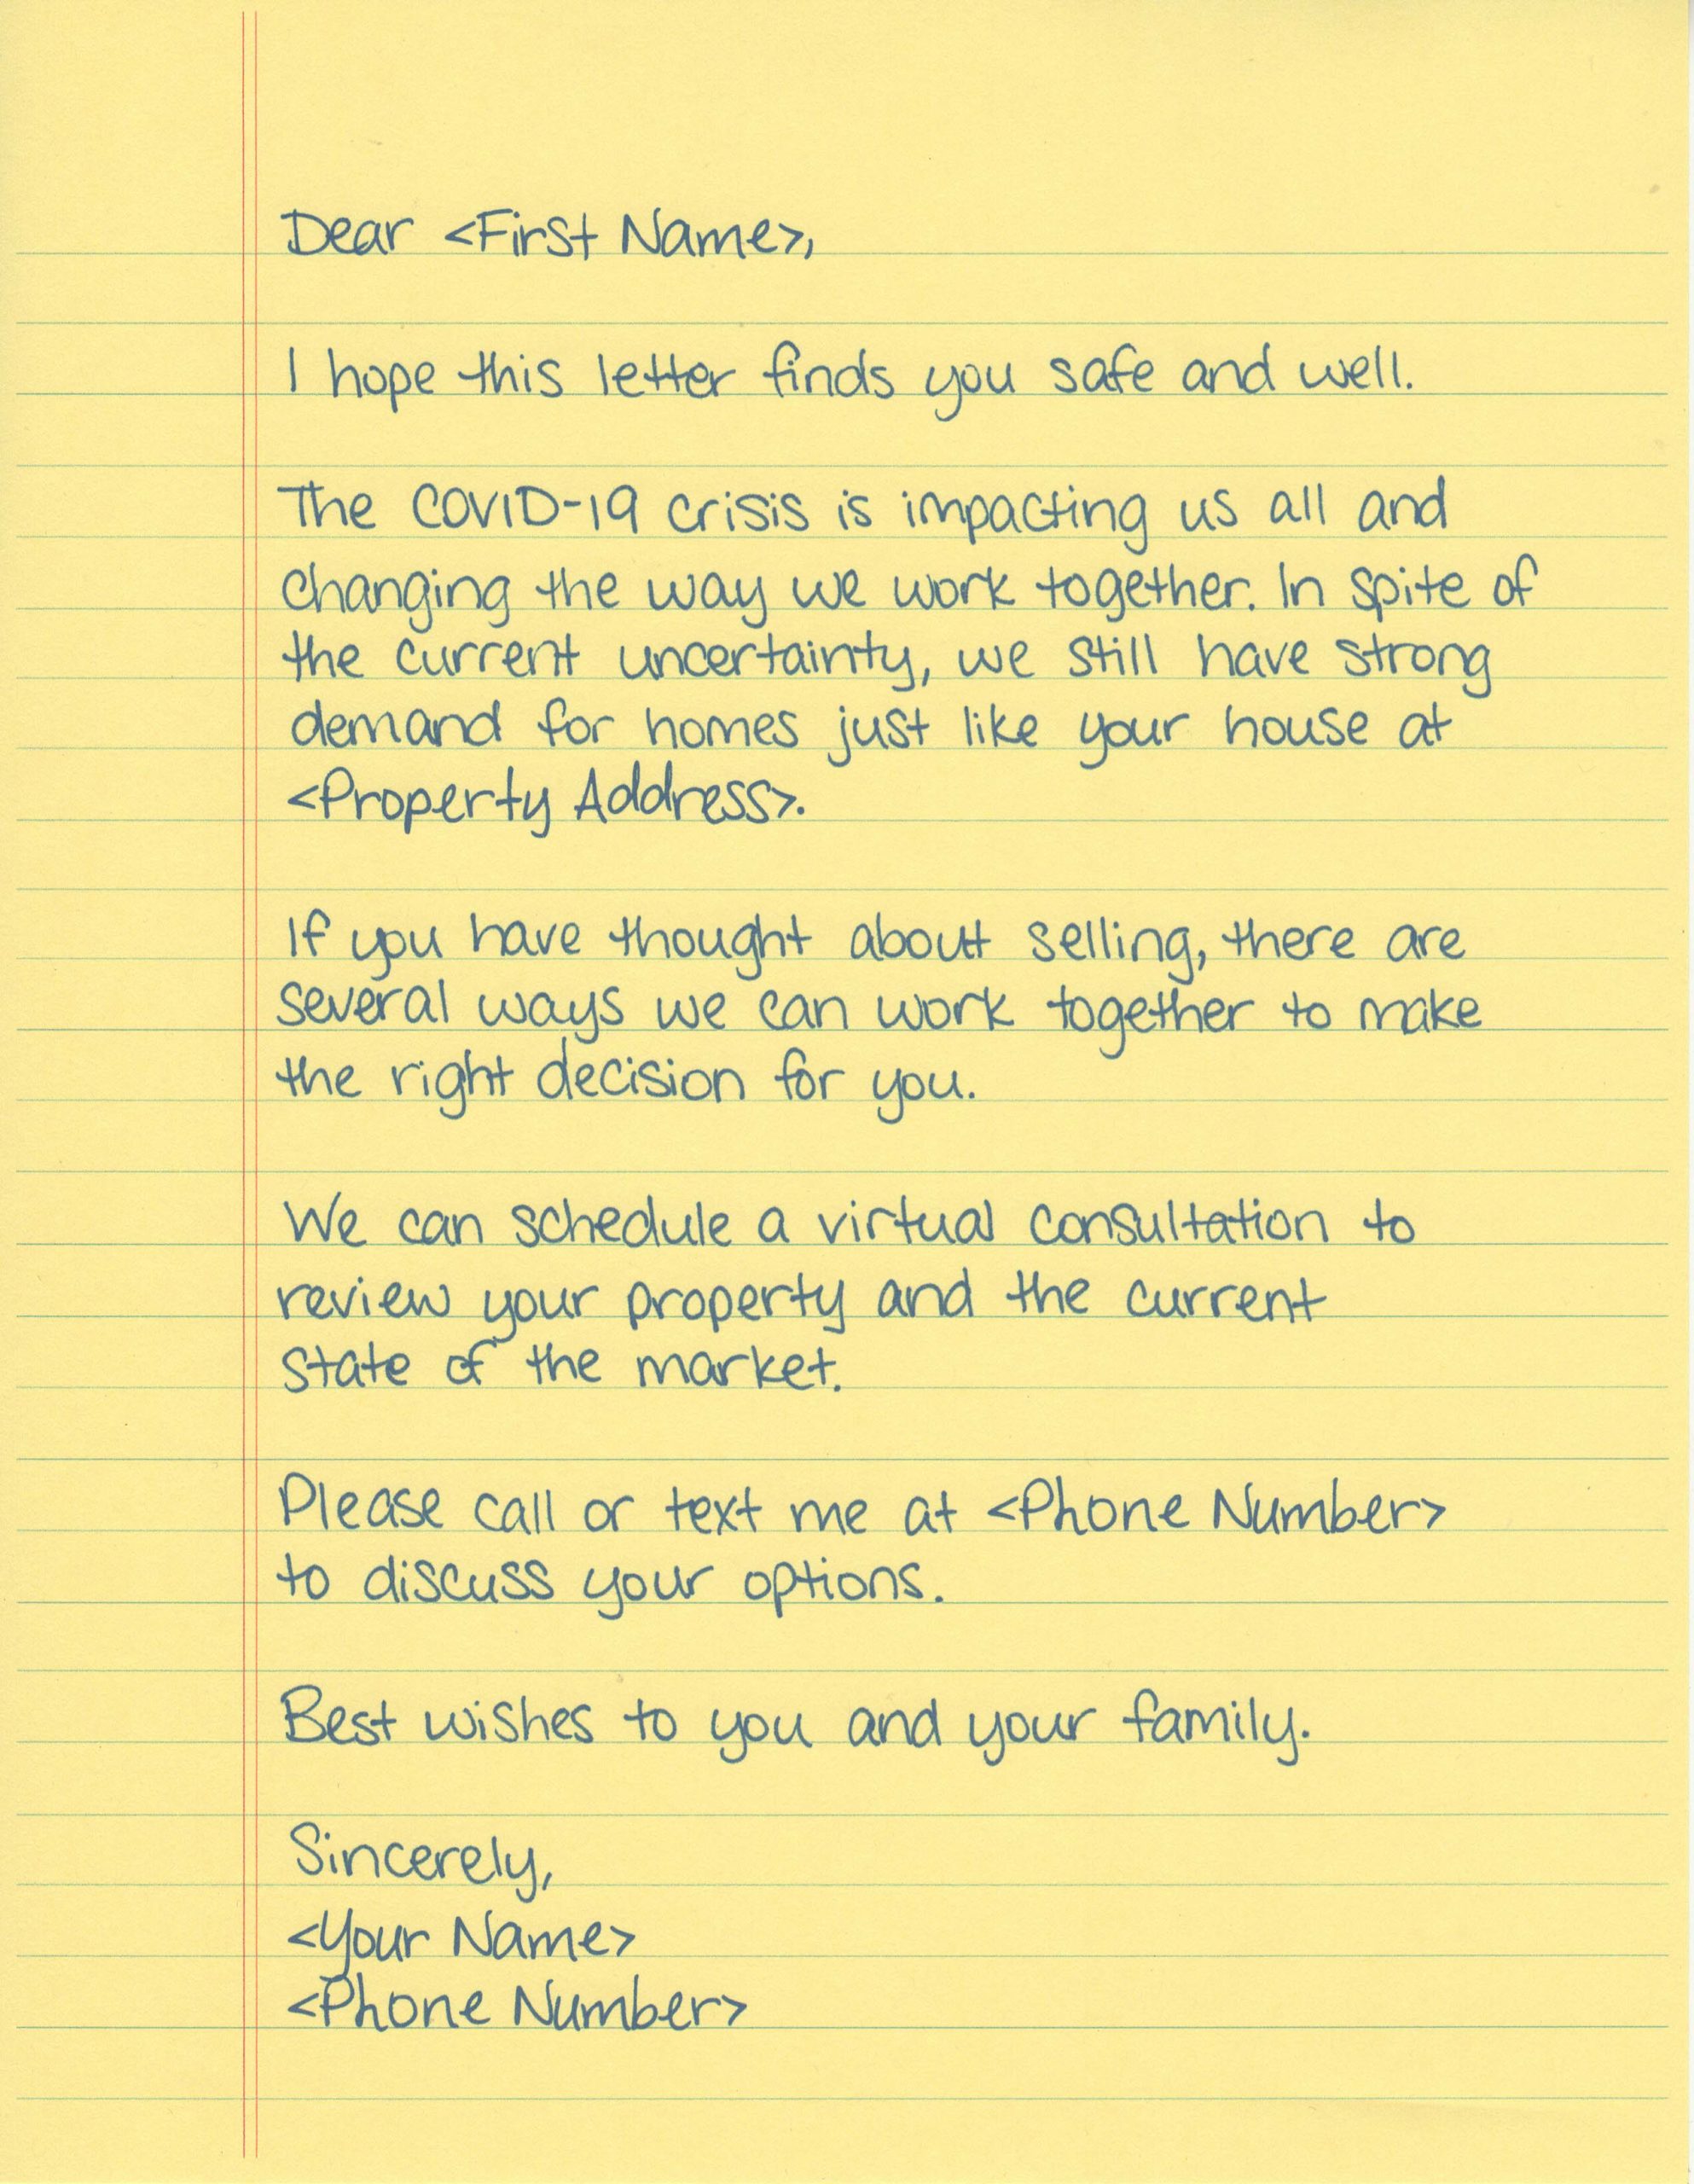 Dear <First Name>,
I hope this letter finds you safe and well.
The COVID-19 crisis is impacting us all and
changing the way we work together. In spite of
the current uncertainty, we still have strong
demand for homes just like your house at
<Property Address>.
If you have thought about selling, there are
several ways we can work together to make
the right decision for you.
We can schedule a virtual consultation to
review your property and the current
state of the market.
Please call or text me at <Phone Number>
to discuss your options.
Best wishes to you and your family.
Sincerely,
<Your Name>
<Phone Number>